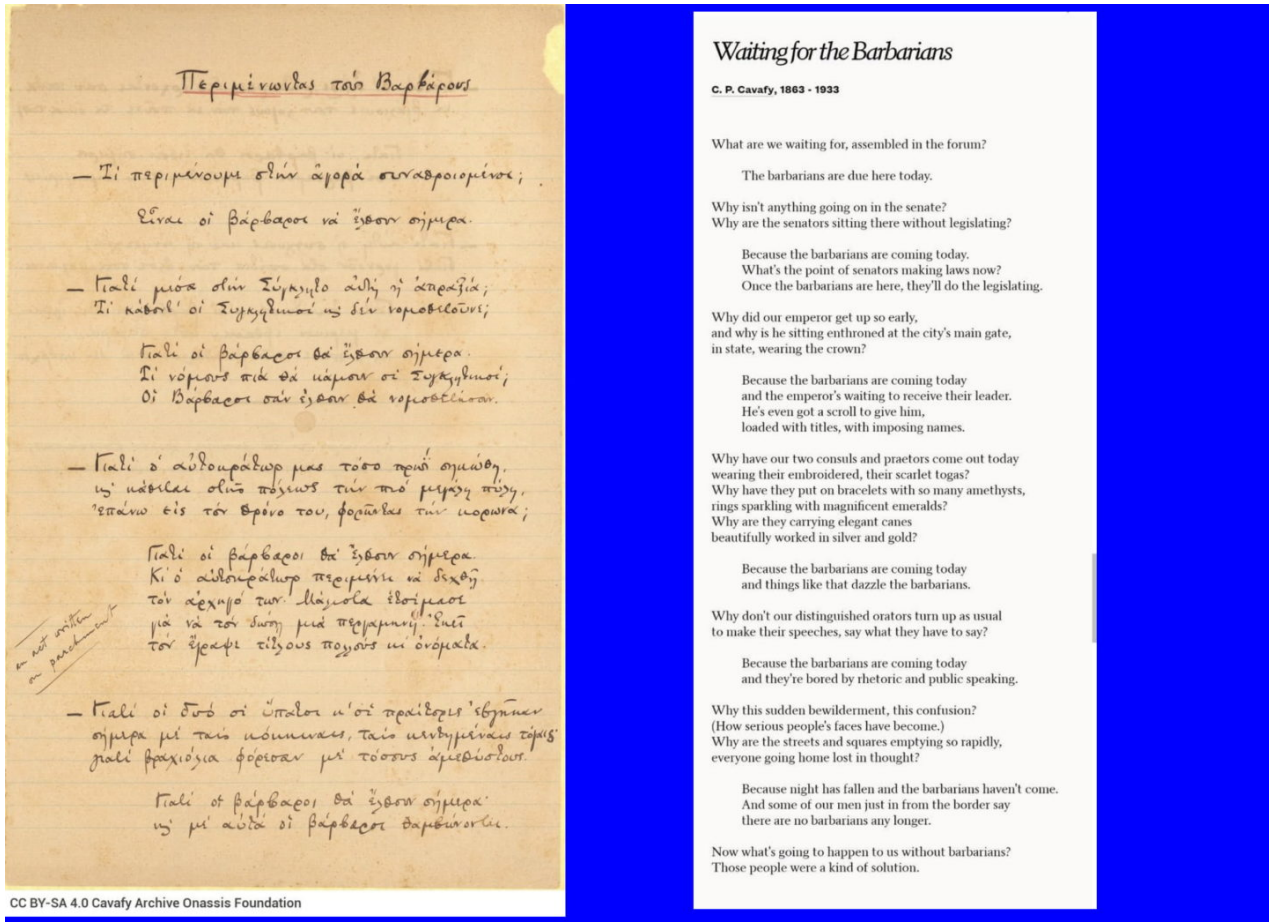 Περιμένωντας τούς Βαρβάρους
— Τί περιμένουμε στήν ἀγορά συναθροισμένοι;
Εἶναι οἱ βάρβαροι νά ἔλθουν σήμερα.
— Γιατί μέσα στήν Σύγκλητο αὐτή ἡ ἀπραξία;
Τί κάθοντ' οἱ Συγκλητικοί κϗ δέν νομοθετοῦνε;
Γιατί οἱ βάρβαροι θά ἔλθουν σήμερα.
Τί νόμους πιά θά κάμουν οἱ Συγκλητικοί;
Οἱ Βάρβαροι σάν ἔλθουν θά νομοθετήσουν.
— Γιατί ὁ αὐτοκράτωρ μας τόσο πρωΐ σηκώθη,
κϗ κάθεται στῆς πόλεως τήν πιό μεγάλη πύλη,
ἐπάνω εἰς τόν θρόνο του, φορῶντας τήν κορώνα;
Γιατί οἱ βάρβαροι θά ἔλθουν σήμερα.
Κι ὁ αὐτοκράτωρ περιμένει νά δεχθῇ
τόν ἀρχηγό των. Μάλιστα ἑτοίμασε
γιά νά τόν δώσῃ μιά περγαμηνή. Ἐκεῖ
τόν ἔγραψε τίτλους πολλούς κι ὀνόματα.
not written
on parchment
— Γιατί οἱ δυό οἱ ὕπατοι κ' οἱ πραίτορες ἐβγῆκαν
σήμερα μέ ταίς κόκκιναις, ταίς κεντημέναις τόγες·
γιατί βραχιόλια φόρεσαν μέ τόσους ἀμεθύστους.
Γιατί οἱ βάρβαροι θά ἔλθουν σήμερα·
κϗ μέ αὐτά οἱ βάρβαροι θαμβώνονται.
CC BY-SA 4.0 Cavafy Archive Onassis Foundation
Waiting for the Barbarians
C. P. Cavafy, 1863 - 1933
What are we waiting for, assembled in the forum?
The barbarians are due here today.
Why isn't anything going on in the senate?
Why are the senators sitting there without legislating?
Because the barbarians are coming today.
What's the point of senators making laws now?
Once the barbarians are here, they'll do the legislating.
Why did our emperor get up so early,
and why is he sitting enthroned at the city's main gate,
in state, wearing the crown?
Because the barbarians are coming today
and the emperor's waiting to receive their leader.
He's even got a scroll to give him,
loaded with titles, with imposing names.
Why have our two consuls and praetors come out today
wearing their embroidered, their scarlet togas?
Why have they put on bracelets with so many amethysts,
rings sparkling with magnificent emeralds?
Why are they carrying elegant canes
beautifully worked in silver and gold?
Because the barbarians are coming today
and things like that dazzle the barbarians.
Why don't our distinguished orators turn up as usual
to make their speeches, say what they have to say?
Because the barbarians are coming today
and they're bored by rhetoric and public speaking.
Why this sudden bewilderment, this confusion?
(How serious people's faces have become.)
Why are the streets and squares emptying so rapidly,
everyone going home lost in thought?
Because night has fallen and the barbarians haven't come.
And some of our men just in from the border say
there are no barbarians any longer.
Now what's going to happen to us without barbarians?
Those people were a kind of solution.